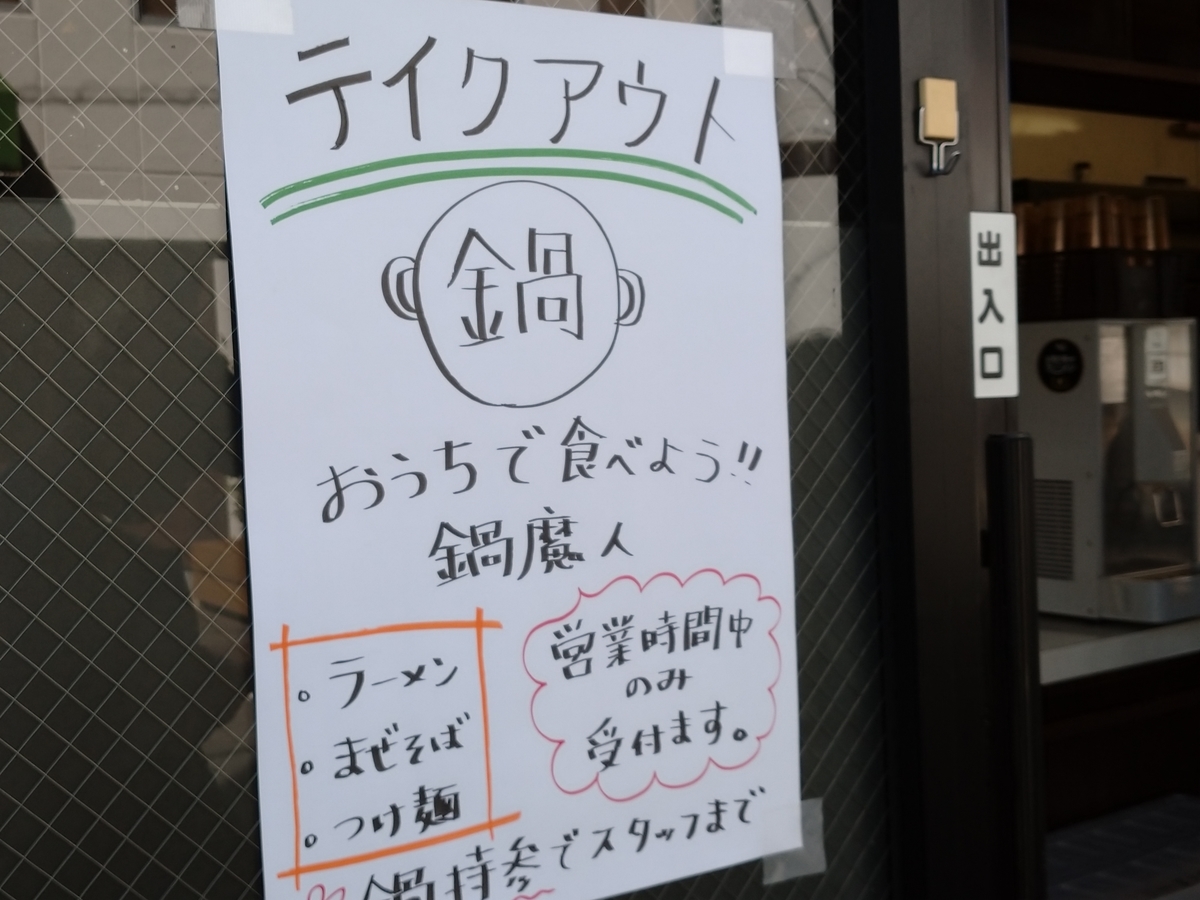 テイクアウト
鍋
おうちで食べよう!!
鍋魔人
。ラーメン
。まぜそば
。つけ麺
営業時間中
のみ
受付ます。
鍋持参でスタッフまで
出入口